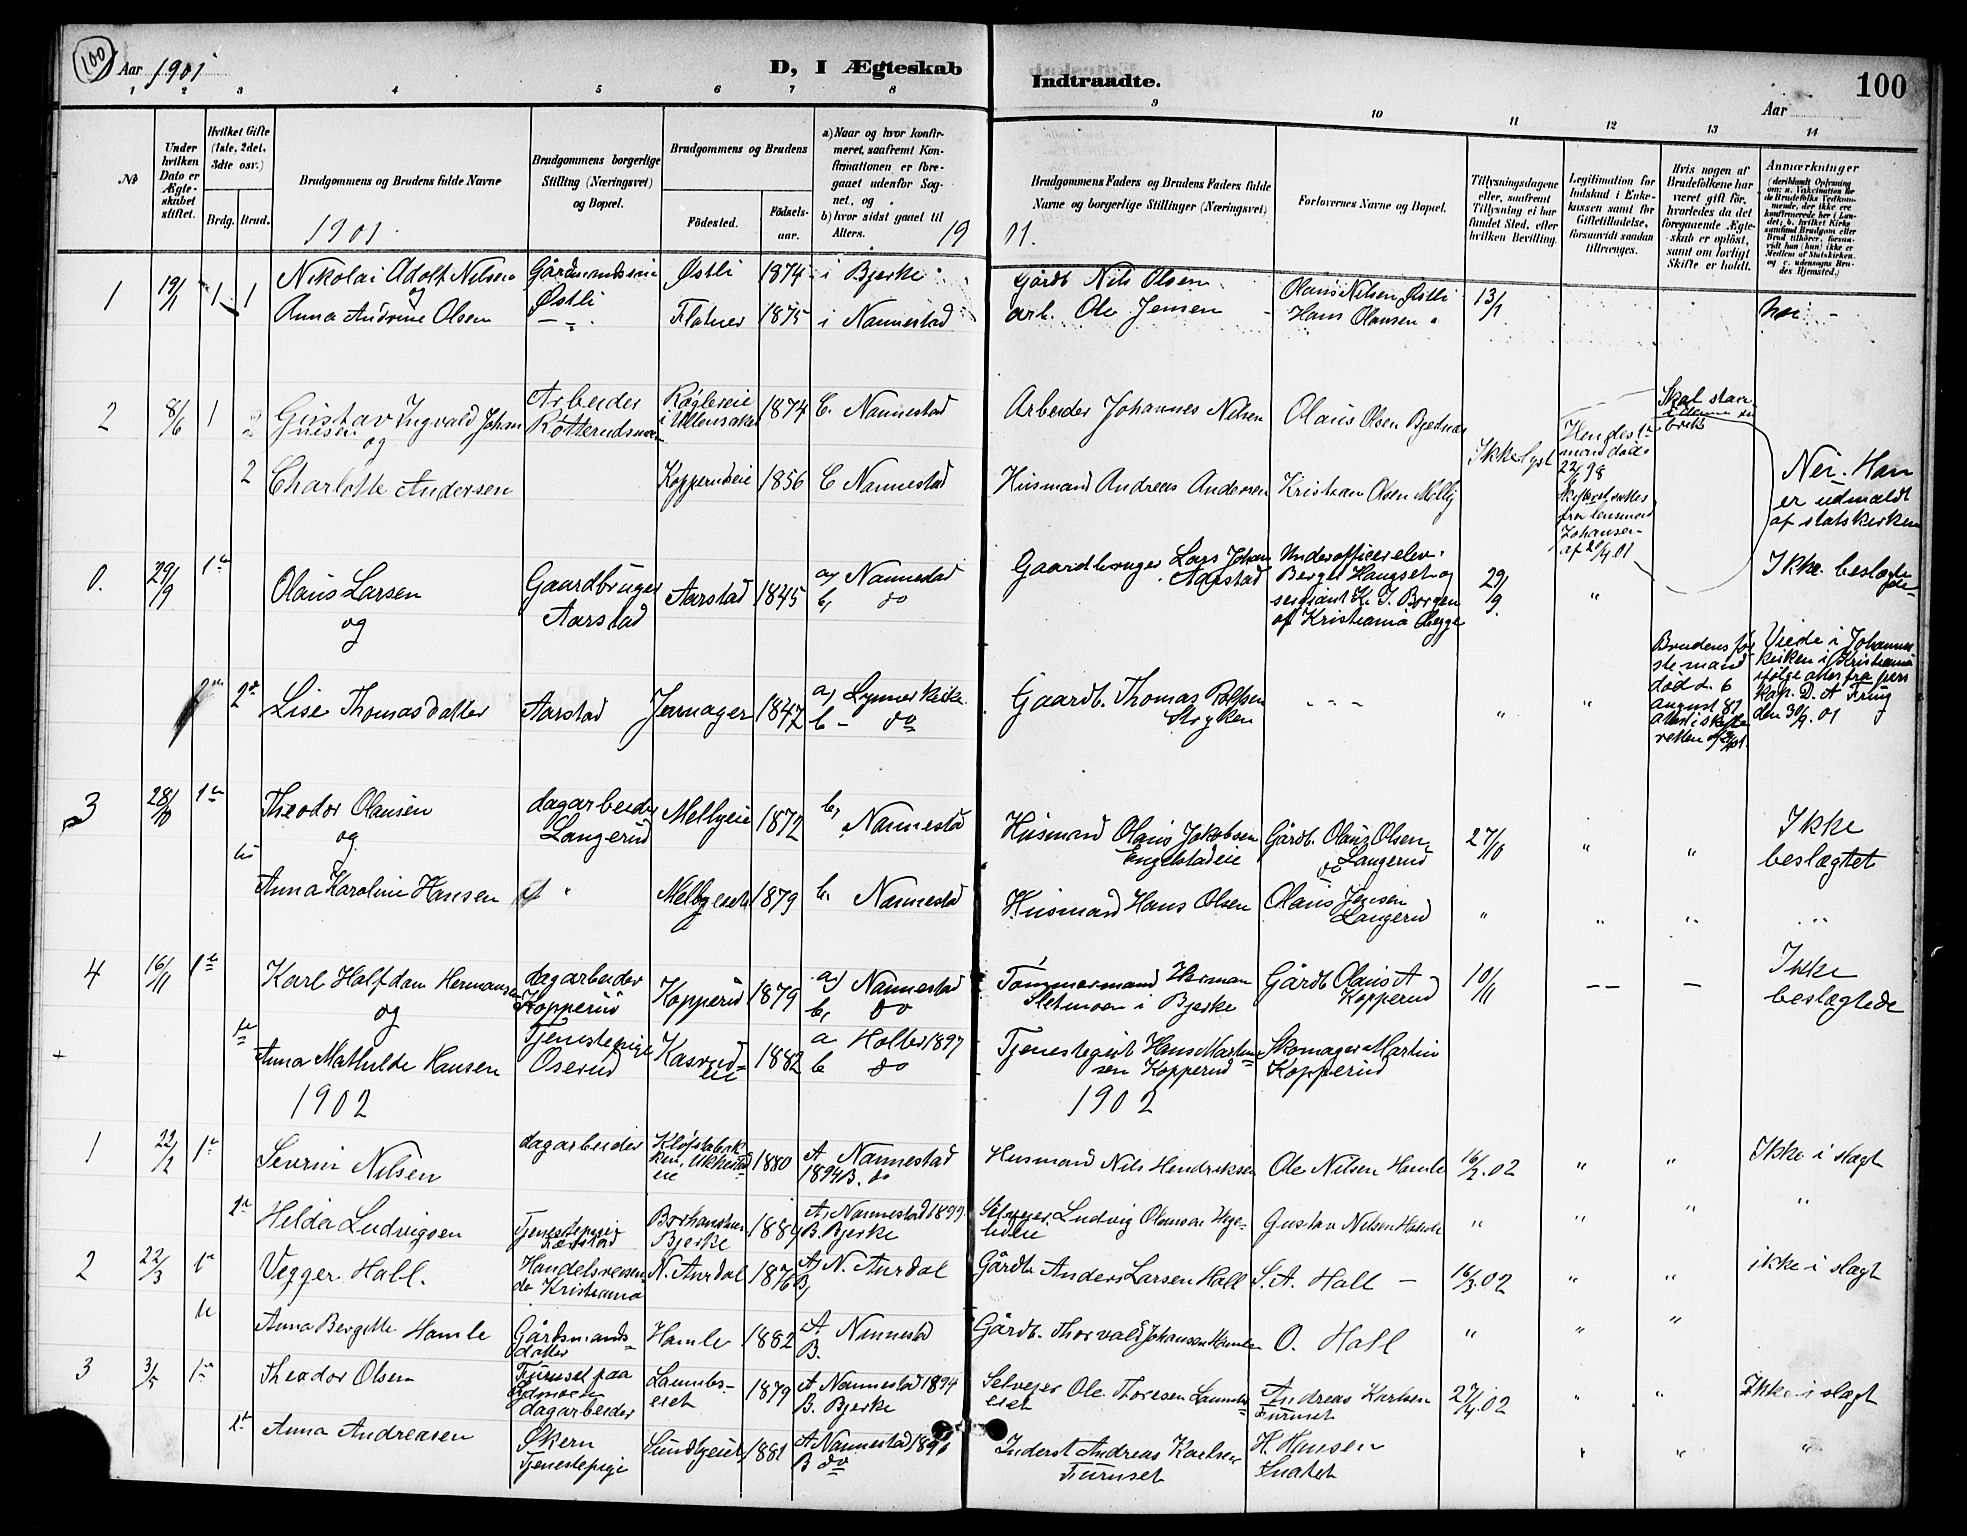 100
Aar 1901
D, I Ægteskab
Indtraadte.
Aar
100
1 2 3 4 5 6 7 8 9 10 11 12 13 14
No
Under hvilken Dato er Ægteskabet stiftet.
Hvilket Gifte (1ste, 2det, 3die osv.)
Brdg. Brud.
Brudgommens og Brudens fulde Navne
Brudgommens borgerlige Stilling (Næringsvei) og Bopæl.
Brudgommens og Brudens
Fødested.
Fødsels-aar.
a) Naar og hvor konfirmeret, saafremt Konfirmationen er foregaaet udenfor Sognet, og
b) hvor sidst gaaet til Alters.
Brudgommens Faders og Brudens Faders fulde Navne og borgerlige Stillinger (Næringsvei)
Forlovernes Navne og Bopæl.
Tillysningsdagene eller, saafremt Tillysning ei har fundet Sted, efter hvilken Bevilling.
Legitimation for Indskud i Enkekassen samt for Giftetilladelse, forsaavidt saadan tiltrænges.
Hvis nogen af Brudefolkene har været gift før, hvorledes da det foregaaende Ægteskab er opløst, samt om lovligt Skifte er holdt.
Anmærkninger
1901. 19 01.
1 19/1 1 1 Nikolai Adolf Nilsen Gårdmandssøn Østli 1874 i Bjerke Gårdb Nils Olsen Olaus Nilsen Østli 13/1
og Østli
Anna Andrine Olsen Flatner 1875 i Nannestad arb. Ole Jensen Hans Olausen " Nei
2 8/6 1 Gustav Ingvald Johannesen Arbeider i Ullensaker 1874 C. Nannestad Arbeider Johannes Nilsen Olaus Olsen Ikke lyst
og
2 Charlotte Andersen Kopperudeie 1856 C Nannestad Husmand Andreas Andersen Kristian Olsen Melby
Hendes 1ste mand død 22/6 98
fra lensmand Johansen af 20/4 01
Skal staa i denne rubrik
Nei. Han er udmeldt af statskirken
0. 29/9 1ste Olaus Larsen Gaardbruger Aarstad 1845 a) Nannestad Gaardbruger Lars Johan Aarstad Underofficerelev 29/9 " Ikke beslægtede
og Aarstad b, do Berger Haugset og sergiant K. J. Borgen af Kristiania Begge
2den Lise Thomasdatter Aarstad Jarnager 1847 a) Lynner kirke Gaardb. Thomas Rolfsen Stryken - - - " "
b - do
Brudens første mand død d. 6 august 81
Viede i Johannes kirken i Kristiania ifølge attest fra pers kap. D. A Frug den 30/9. 01
3 28/10 1ste Theodor Olausen dagarbeider Langerud Mellyeie 1872 b, Nannestad Husmand Olaus Jakobsen Engelstadeie Gårdb. Olaus Olsen Langerud 27/10 " " Ikke beslægtet
og
Anna Karoline Hansen " Melbyeiet 1879 b. Nannestad Husmand Hans Olsen Olaus Jensen Langerud " " " "
4 16/11 1ste Karl Halfdan Hermansen dagarbeider Kopperud Kopperud 1879 a) Nannestad Tømmermand Herman Sletmoen i Bjerke Gårdb Olaus A Kopperud 10/11 - - - Ikke beslægtede
og b, do
+ 1ste Anna Mathilde Hansen Tjenestepige Oserud Kasrudeie 1882 a Holter 1897 Tjenestegut Hans Martinsen Kopperud Skomager Martin Kopperud
b do
1902 1902
1 22/2 1ste Severin Nilsen dagarbeider 1880 A Nannestad 1894 B. do Husmand Nils Hendriksen Ole Nilsen Hamle 16/2.02 " " Ikke i slægt
1ste Helda Ludvigsen Tjenestepige Bjerke 1881 A, Nannestad 1899 B. Bjerke Selveier Ludvig Olausen Gustav Nilsen Hamle " " " "
2 22/3 1ste Vegger Hall. Handelsreisende Kristiania N. Aurdal 1876 A, N. Aurdal B, Gårdb Anders Larsen Hall S. A. Hall - 16/3.02 " " ikke i slægt
1ste Anna Bergitte Hamle Gårdmandsdatter Hamle 1882 A Nannestad B. Gårdb. Thorvald Johansen Hamle O. Hall " " "
3 3/5 1ste Theodor Olsen Furuset paa dagarbeider 1879 A Nannestad 1894 B. Bjerke Selveier Ole Thoresen Andreas Karlsen Furuset 27/4.02 " " Ikke i slægt
1ste Anna Andreasen Økern Tjenestepige Sundbyeiet 1881 A Nannestad 1896 B do Inderst Andreas Karlsen Furuset H. Hansen " " "